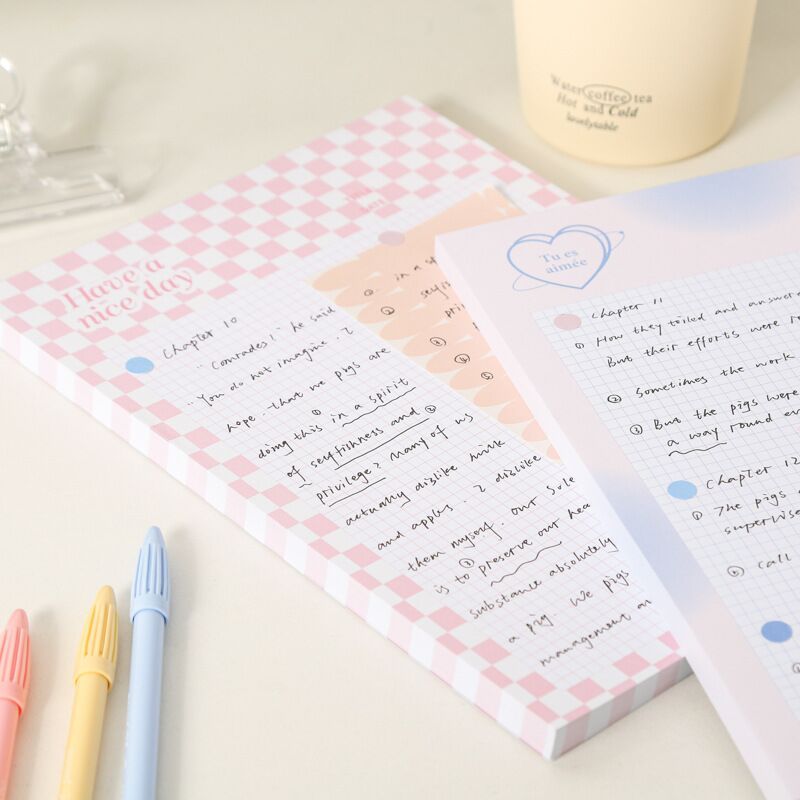 Water coffee tea
Hot and Cold
lovelysable
Have a
nice day
Chapter 10
"Comrades!" he said
"You do not imagine, I
hope that we pigs are
doing this ① in a spirit
of selfishness and ②
privilege? Many of us
actually dislike milk
and apples. I dislike
them myself. Our sole
③
is to preserve our hea
substance absolutely
a pig. We pigs
management an
① in a s
② selfi
priv
③
④
⑤
Tu es
aimée
Chapter 11
① How they toiled and answer
But their efforts were r
② Sometimes the work
③ But the pigs were
a way round ev
Chapter 12
① The pigs
supervise
② Call
①